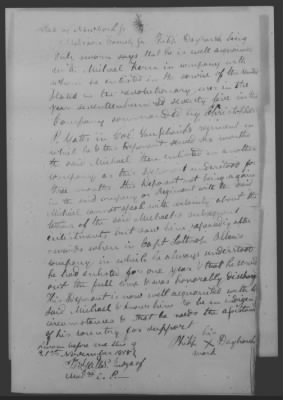 State of New York
Montgomery County Philip Dayharsh being
duly sworn says that he is well acquainted
with Michael in company with
whom he enlisted in the service of the United
States in the revolutionary war in the
year seventeenhundred & seventy five in the
Company commanded by Christopher
P. Yates in Col. regiment in
which he & this Deponent served six months
the said Michael then enlisted in another
company as this deponent understood for
three months this deponent not being again
in the said company or Regiment with the said
Michael cannot speak with certainty about the
terms of the said Michaels subsequent
enlistments, but saw him repeatedly after
wards when in Capt
company in which he always understood
he had enlisted for one year & that he served
out the full time & was honorably discharged
This Deponent is now well acquainted with the
said Michael & knows him to be in indigent
circumstances & that he needs the assistance
of his country for support
sworn before me this
21st November 1818
his
Philip X Dayharsh
mark
Judge of
C. P.